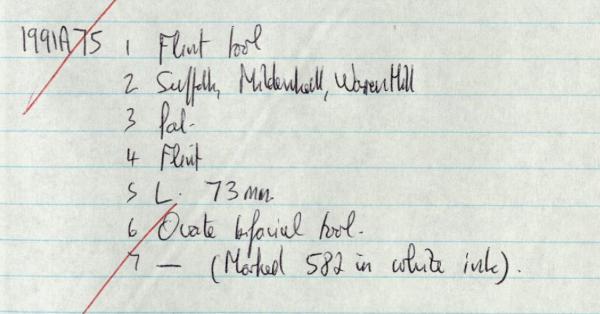 1991A75 1 Flint tool
2 Suffolk, Mildenhall, Warren Hill
3 Pal.
4 Flint
5 L. 73mm.
6 Ovate bifacial tool.
7 — (Marked 582 in white ink).